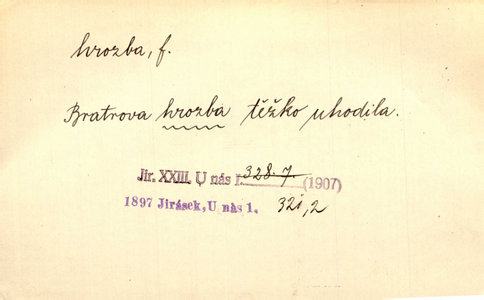 hrozba, f.
Bratrova hrozba těžko uhodila.
Jir. XXIII. U nás I. 328.7. (1907)
1897 Jirásek, U nás 1. 321,2